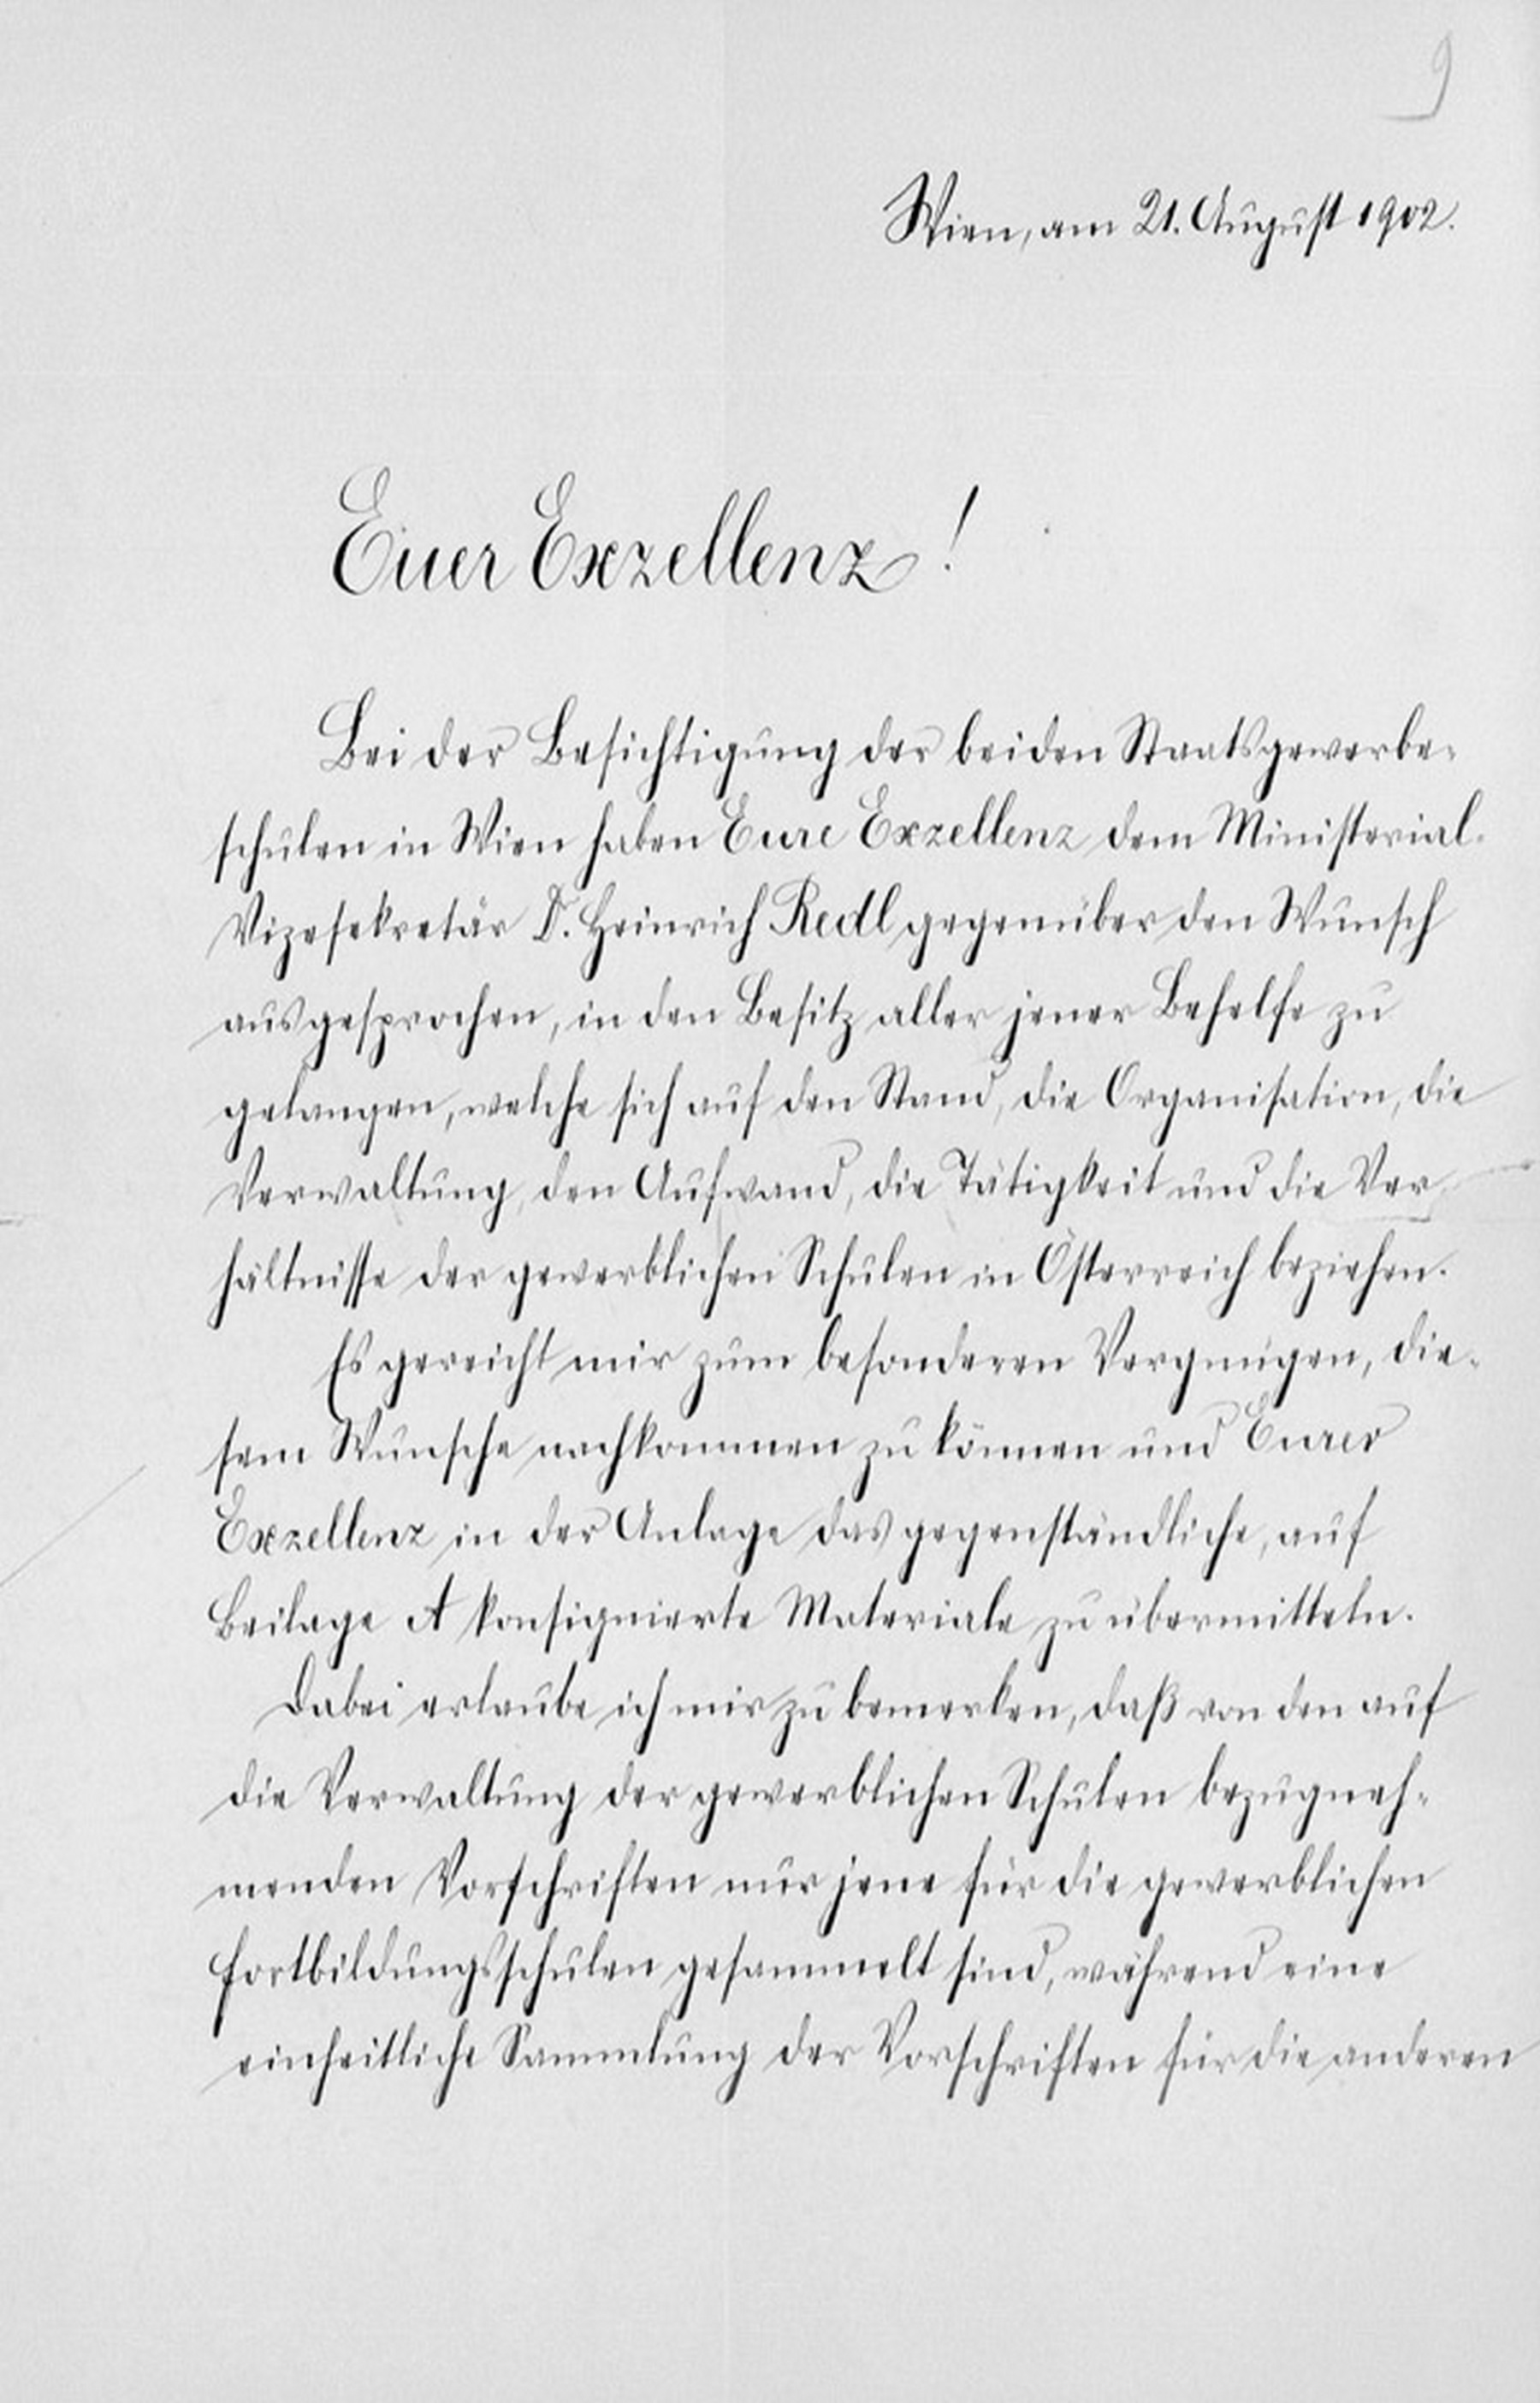 9
Wien, am 21. August 1902.
Euer Exzellenz!
Bei der Besichtigung der beiden Staatsgewerbe-
schulen in Wien haben Eure Exzellenz dem Ministerial-
Vizesekretär Dr. Heinrich Redl gegenüber den Wunsch
ausgesprochen, in den Besitz aller jener Behelfe zu
gelangen, welche sich auf den Stand, die Organisation, die
Verwaltung, den Aufwand, die Tätigkeit und die Ver-
hältnisse der gewerblichen Schulen in Österreich beziehen.
Es gereicht mir zum besonderen Vergnügen, die-
sem Wunsche nachkommen zu können und Eurer
Exzellenz in der Anlage das gegenständliche, auf
Beilage A konsignierte Materiale zu übermitteln.
Dabei erlaube ich mir zu bemerken, daß von den auf
die Verwaltung der gewerblichen Schulen bezugneh-
menden Vorschriften nur jene für die gewerblichen
Fortbildungsschulen gesammelt sind, während eine
einheitliche Sammlung der Vorschriften für die anderen